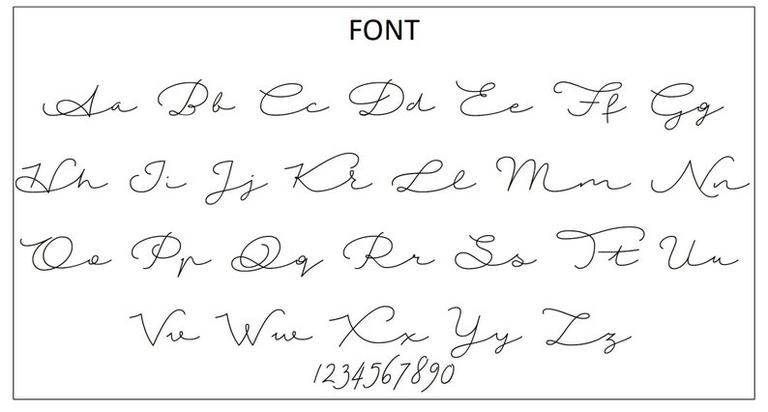 FONT
Aa Bb Cc Dd Ee Ff Gg
Hh Ii Jj Kk Ll Mm Nn
Oo Pp Qq Rr Ss Tt Uu
Vv Ww Xx Yy Zz
1234567890